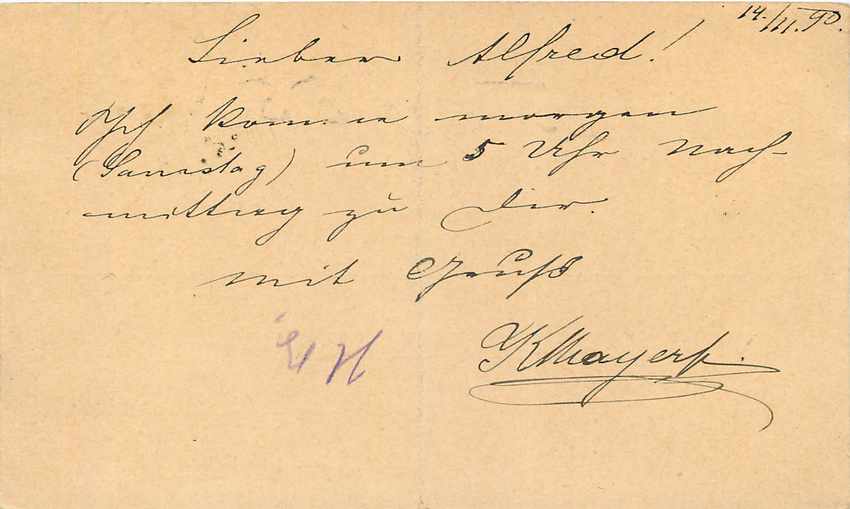 14./III. 90.
Lieber Alfred!
Ich komme morgen
(Samstag) um 5 Uhr Nach-
mittag zu Dir.
mit Gruß